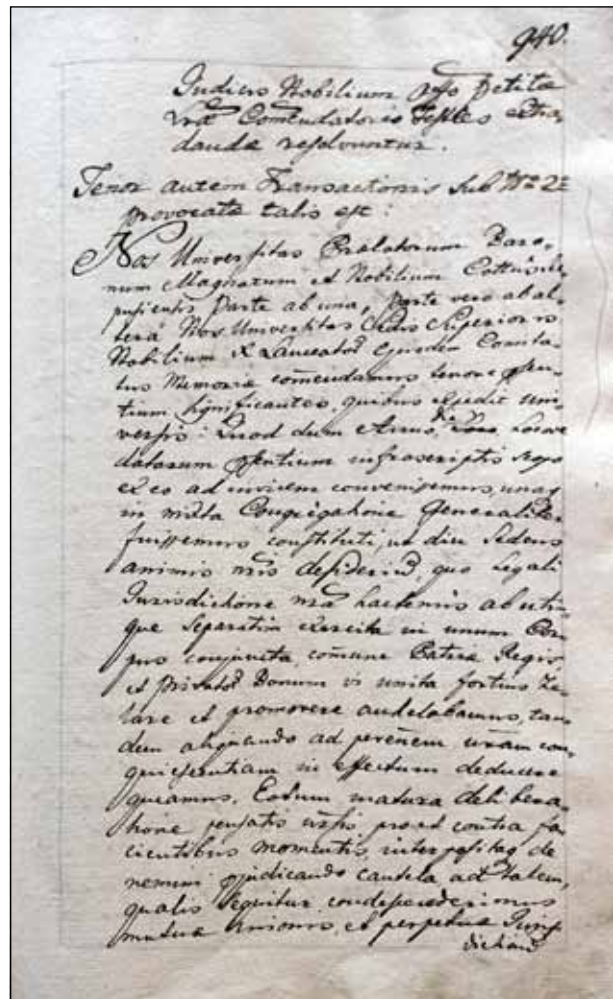 940.
Judicis Nobilium pro petitæ
Lræ Comendatoriæ Testles extra,
dandæ resolvuntur.
Tenor autem Transactionis sub Nro 2o
provocatæ talis est:
Nos Universitas Prælatorum Baro,
num Magnatum et Nobilium Cottus Sce,
pusiensis Parte ab una, parte vero ab al,
tera Nos Universitas Sedis Superior
Nobilium X Lanceator ejusdem Comita,
tus Memoriæ comendamus tenore psen,
tium significantes, quibus expedit uni,
versis: Quod dum Anno, Die Loco
datarum psentium infrascriptis
ex eo ad invicem convenissemus, unaq
in nrâ Congregatione Generali
fuissemus constituti, ut diu sedens
animis nris desideriu, quo Legali
Jurisdictione nrâ hactenus ab utri,
que separatim exercita in unum Cor,
pus conjuncta, comune Patriæ Regis,
et Privator Bonum vi unita fortius Ze,
lare et promovere anhelabamus, tan,
dem aliquando ad perenem nram con,
quiescentiam in effectum deducere
queamus. Eatum matura delibera,
tione pensatis ursis pro et contra fa,
cientibus momentis interpositaq de
nemini pjudicando cautela ad talem,
qualis sequitur condescenderimus
mutuæ Unionis, et perpetuæ Juris
dictiona